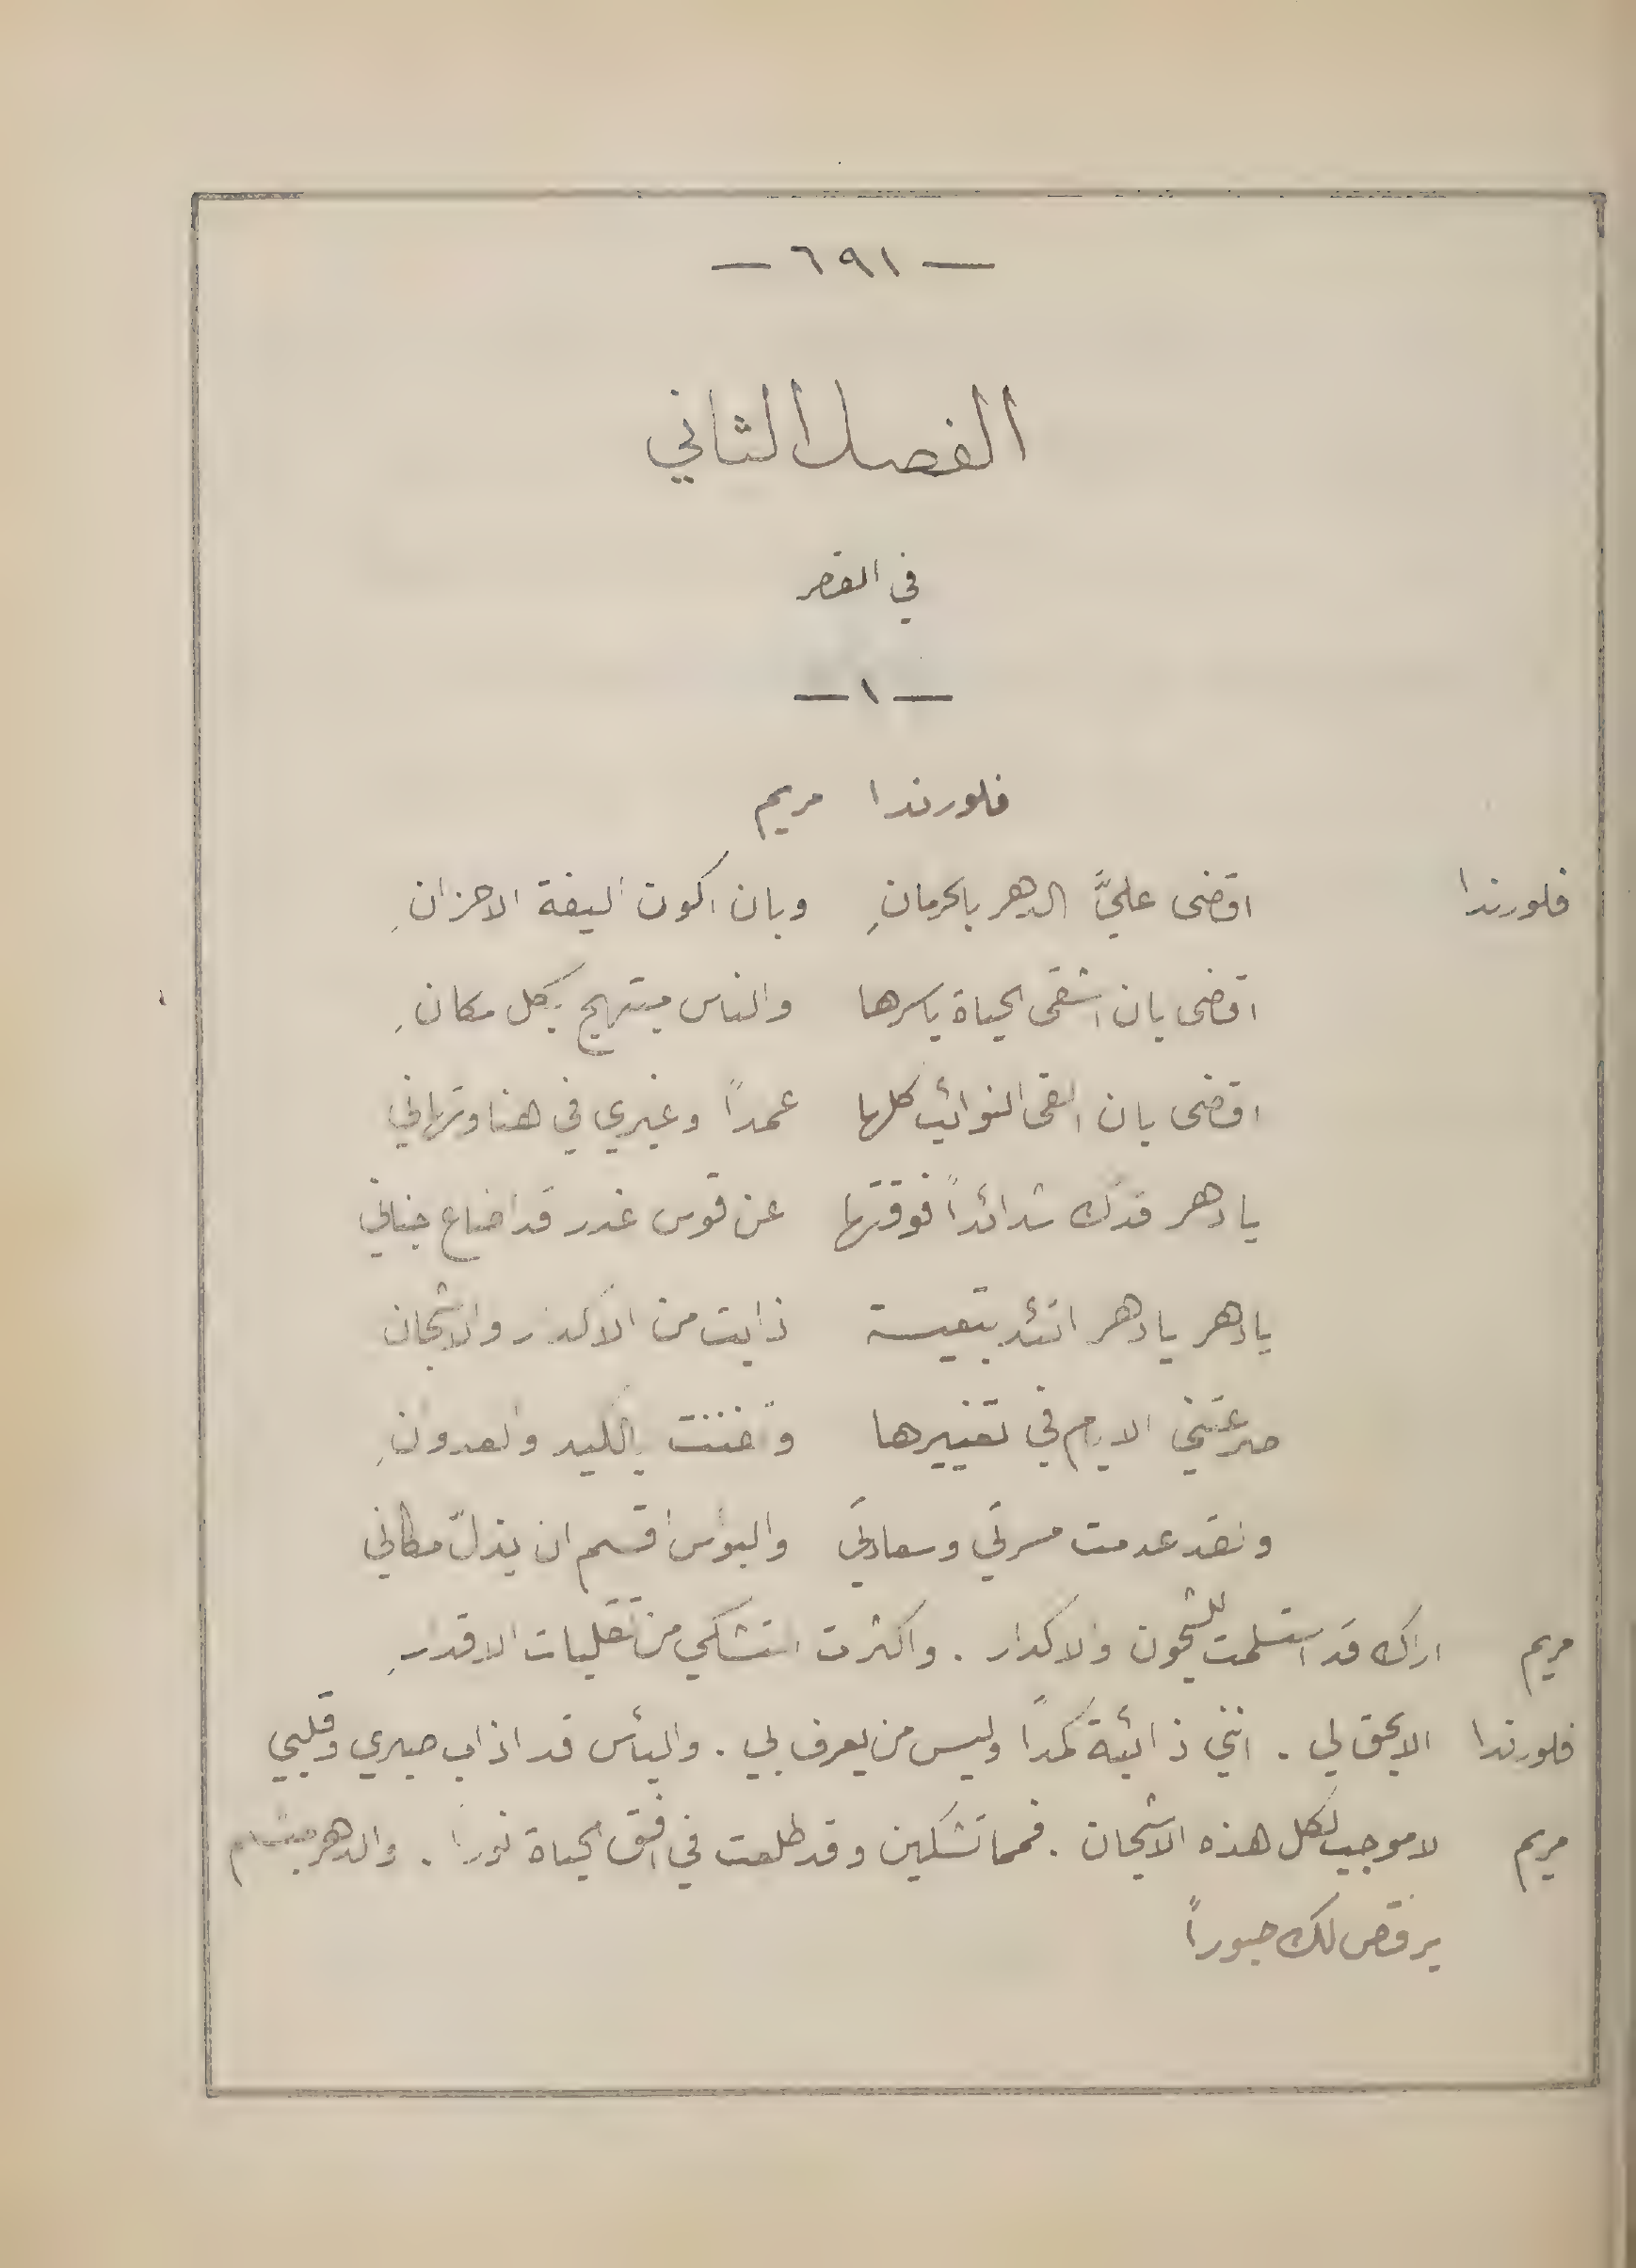 — ٦٩١ —
الفصل الثاني
في القصر
— ١ —
فلورندا مريم
فلورندا اقضى عليَّ الدهر بالحرمانِ وبان اكون اليفة الاحزانِ
اقضى بان اشقى الحياة باسرها والناس مبتهج بكل مكانِ
اقضى بان القى النوائب كلها عمداً وغيري في هنا وتهاني
يا دهر قدك شدائداً فوقتها عن قوس غدر قد اضاع جناني
يا دهر يا دهر اتئد بتعيسة ذابت من الاكدار والاشجان
صرعتني الايام في تغييرها وتفننت بالكيد والعدوانِ
ولقد عدمت مسرتي وسعادتي والبؤس اقسم ان يذلّ مكاني
مريم اراك قد استسلمت للشجون والاكدار . واكثرت التشكي من تقلبات الاقدارِ
فلورندا الا يحق لي . انني ذائبة كمداً وليس من يعرف بي . واليأس قد اذاب صبري وقلبي
مريم لا موجب لكل هذه الاشجان . فمما تشكين وقد طلعت في افق الحياة نوراً . والدهر بسّام
يرقص لك حبوراً